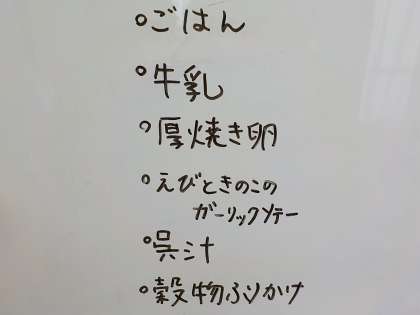 ○ごはん
○牛乳
○厚焼き卵
○えびときのこの
ガーリックソテー
○呉汁
○穀物ふりかけ